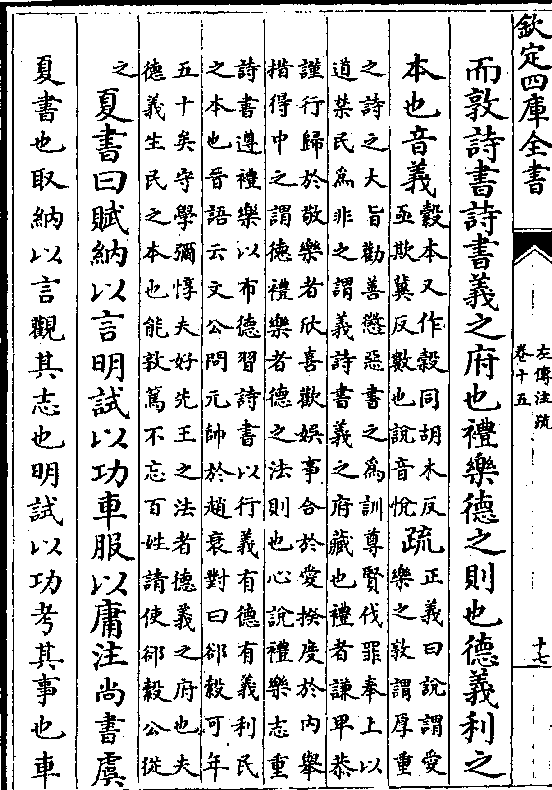 欽定四庫全書
左傳注疏
卷十五
十七
而敦詩書詩書義之府也禮樂德之則也德義利之
本也音義
縠本又作穀同胡木反
亟欺冀反數也說音悅
疏
正義曰說謂愛
樂之敦謂厚重
之詩之大旨勸善懲惡書之為訓尊賢伐罪奉上以
道禁民為非之謂義詩書義之府藏也禮者謙卑恭
謹行歸於敬樂者欣喜歡娛事合於愛揆度於內舉
措得中之謂德禮樂者德之法則也心說禮樂志重
詩書遵禮樂以布德習詩書以行義有德有義利民
之本也晉語云文公問元帥於趙衰對曰郤縠可年
五十矣守學彌惇夫好先王之法者德義之府也夫
德義生民之本也能敦篤不忘百姓請使郤縠公從
之
夏書曰賦納以言明試以功車服以庸注尚書虞
夏書也取納以言觀其志也明試以功考其事也車